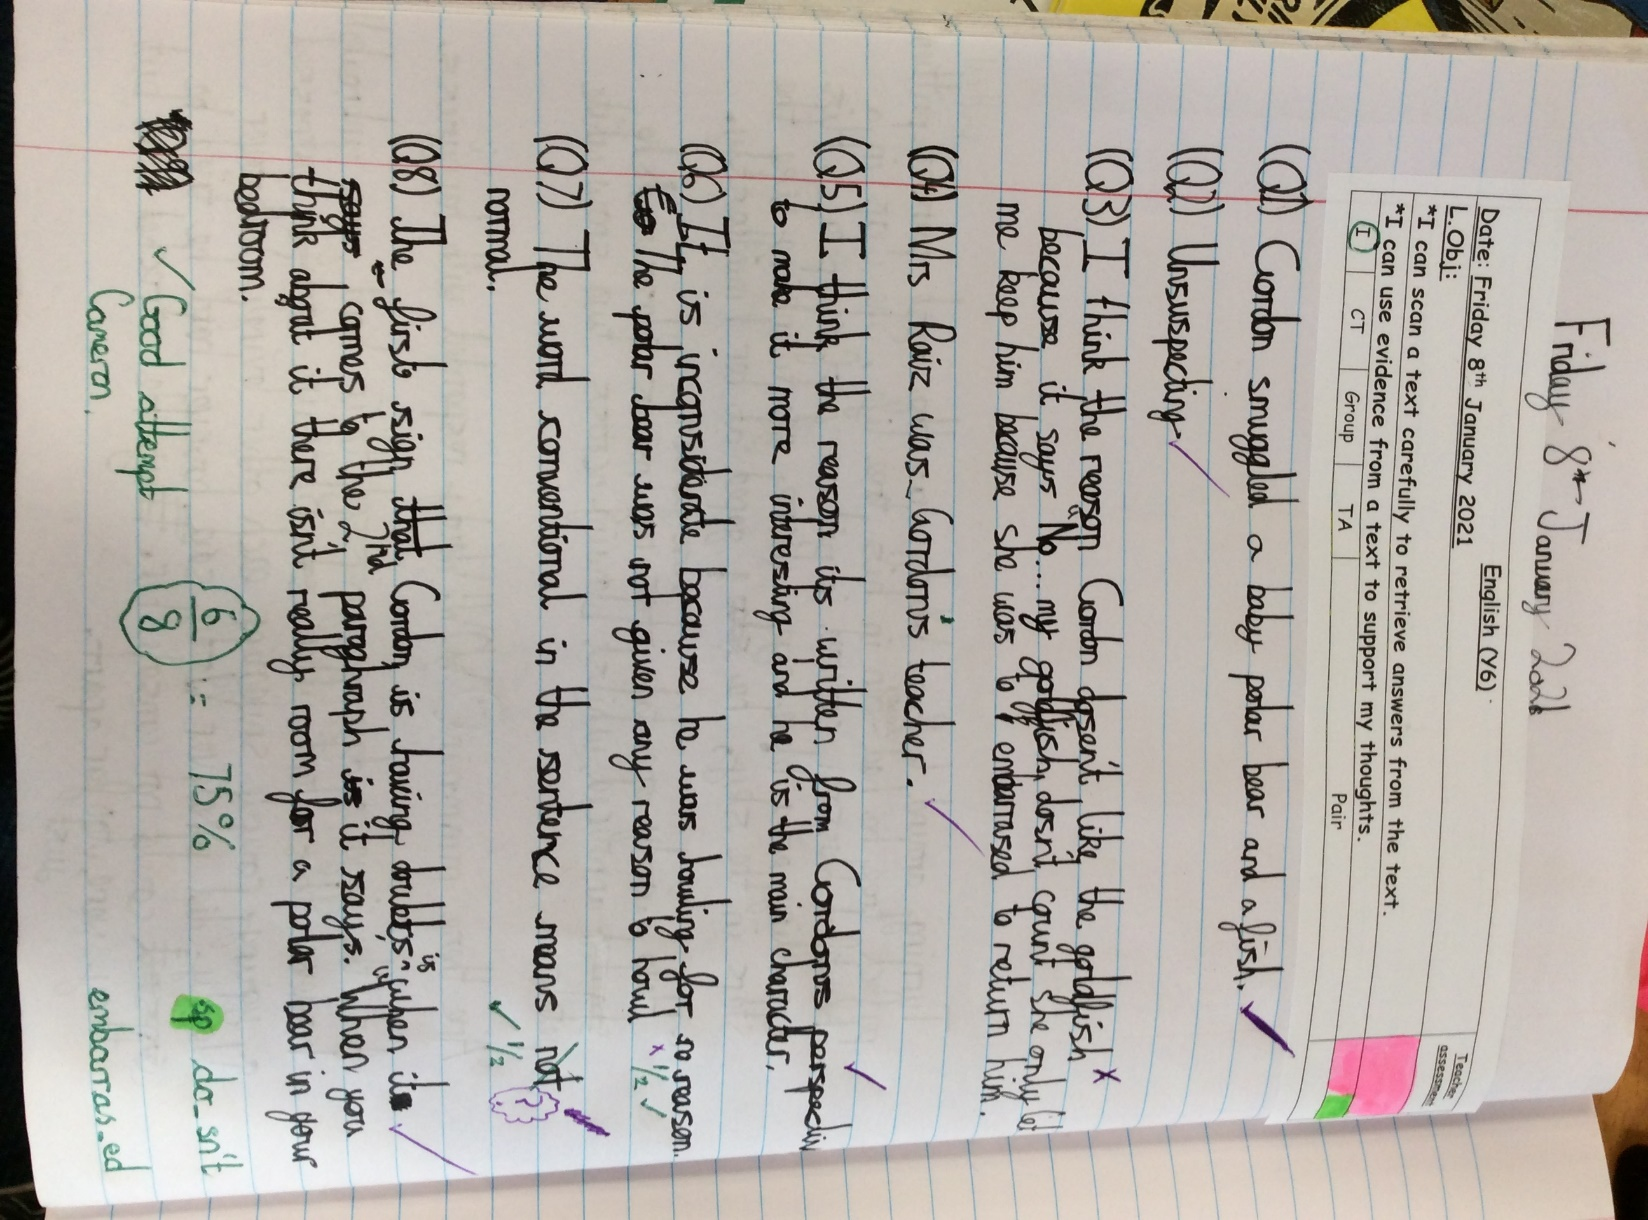 Friday 8th January 2021
Date: Friday 8th January 2021 English (Y6)
L.Obj:
*I can scan a text carefully to retrieve answers from the text.
*I can use evidence from a text to support my thoughts.
I CT Group TA Pair
Teacher assessment
(Q1) Gordon smuggled a baby polar bear and a fish.
(Q2) Unsuspecting.
(Q3) I think the reason Gordon dosent like the goldfish x
because it says "No... my goldfish dosn't count she only let
me keep him because she was to embarrased to return him.
(Q4) Mrs Raiz was Gordon's teacher.
(Q5) I think the reason its written from Gordons
to make it more interesting and he is the main character.
(Q6) It is inconsiderate because he was howling for no reason.
The polar bear was not given any reason to howl x 1/2 ✓
(Q7) The word conventional in the sentence means not ?
normal. ✓ 1/2
(Q8) The first sign that Gordon is having doubts is when it
comes to the 2nd paraghraph it says. "When you
think about it there isn't really room for a polar bear in your
bedroom.
✓ Good attempt 6/8 = 75% sp do_sn't
Cameron. embarras_ed